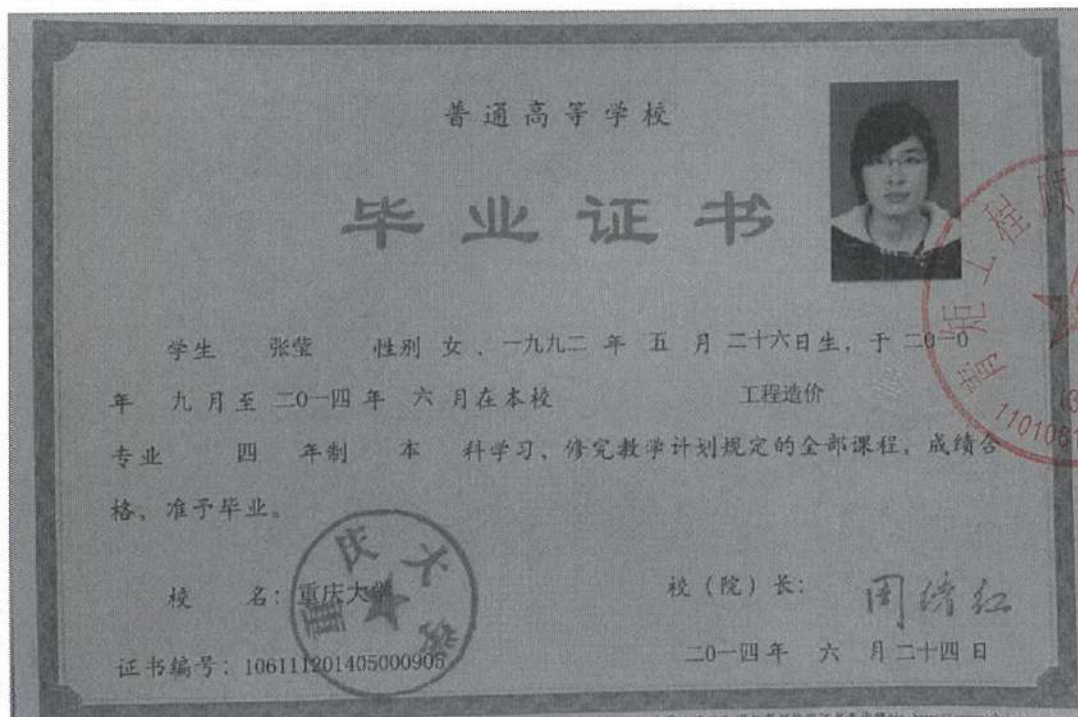 普通高等学校
毕业证书
学生 张莹 性别 女、一九九二 年 五 月 二十六日生，于 二0一0
年 九 月至 二0一四 年 六 月在本校 工程造价
专业 四 年制 本 科学习、修完教学计划规定的全部课程，成绩合
格，准予毕业。
校 名：重庆大学
校（院）长： 周绪红
证书编号：106111201405000905
二0一四 年 六 月二十四 日
重庆大学
工程
110108